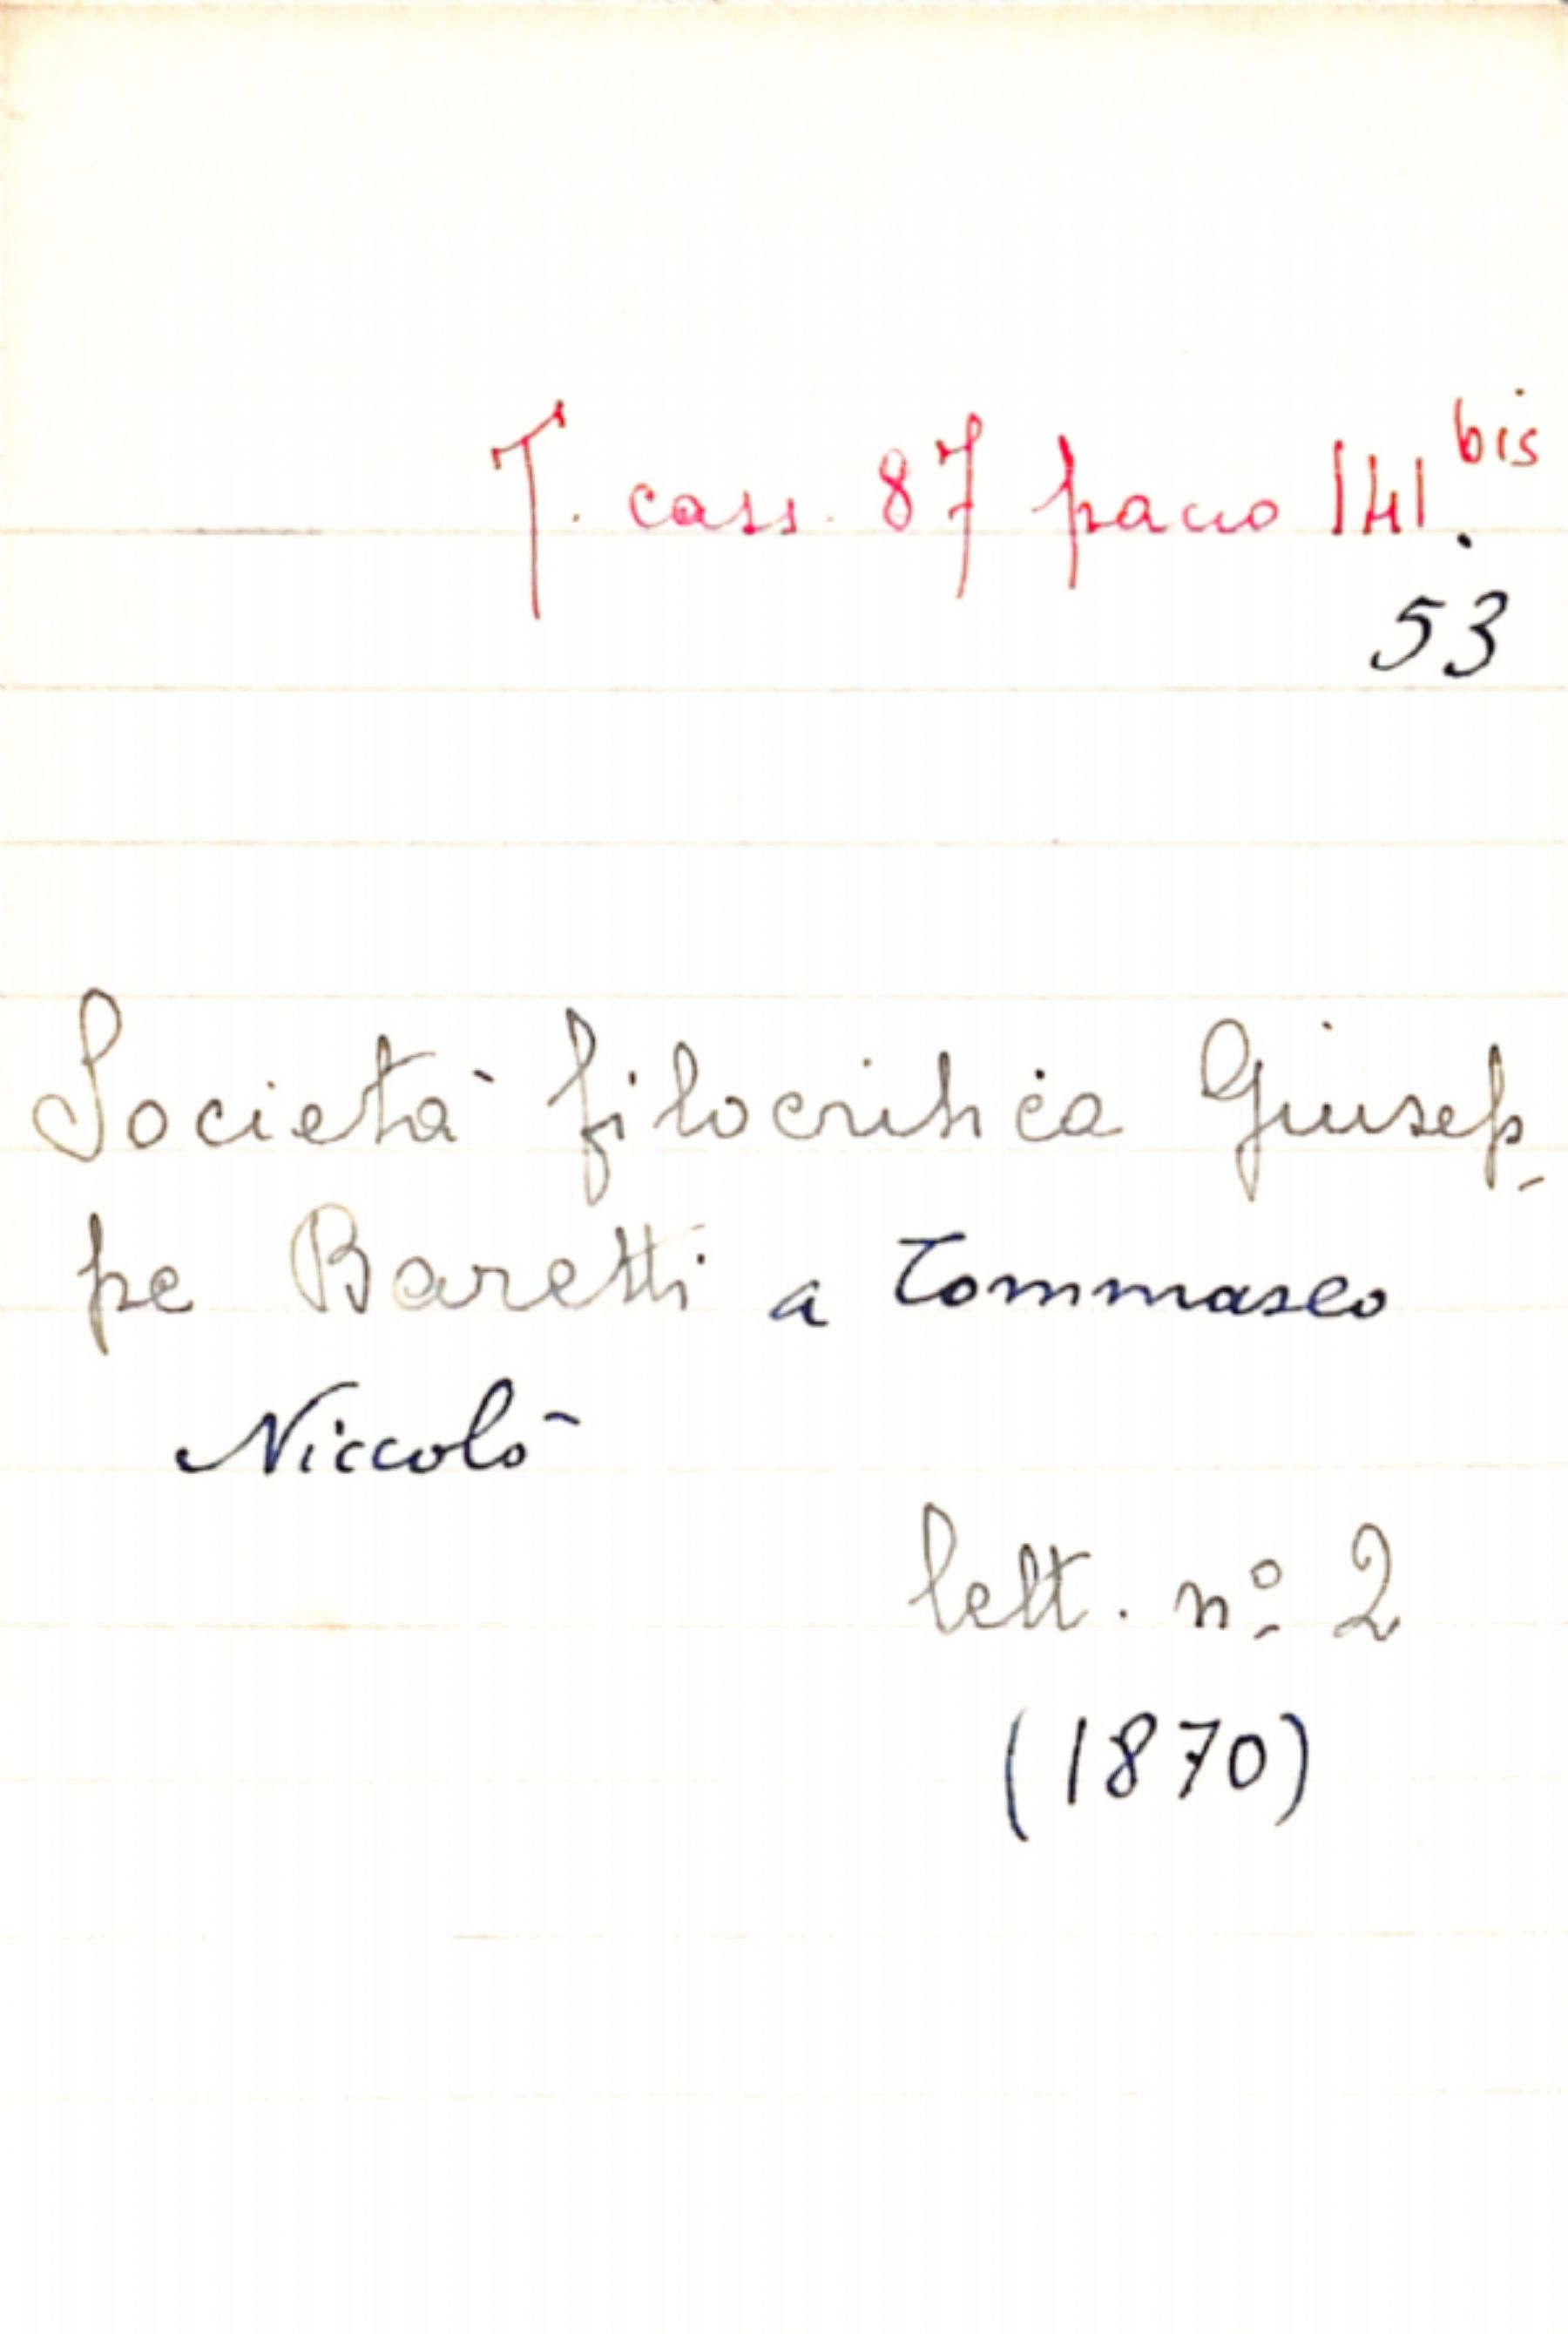 T. cass. 87 pacco 141.bis
53
Società filocritica Giusep-
pe Baretti a Tommaseo
Niccolò
lett. nº 2
(1870)